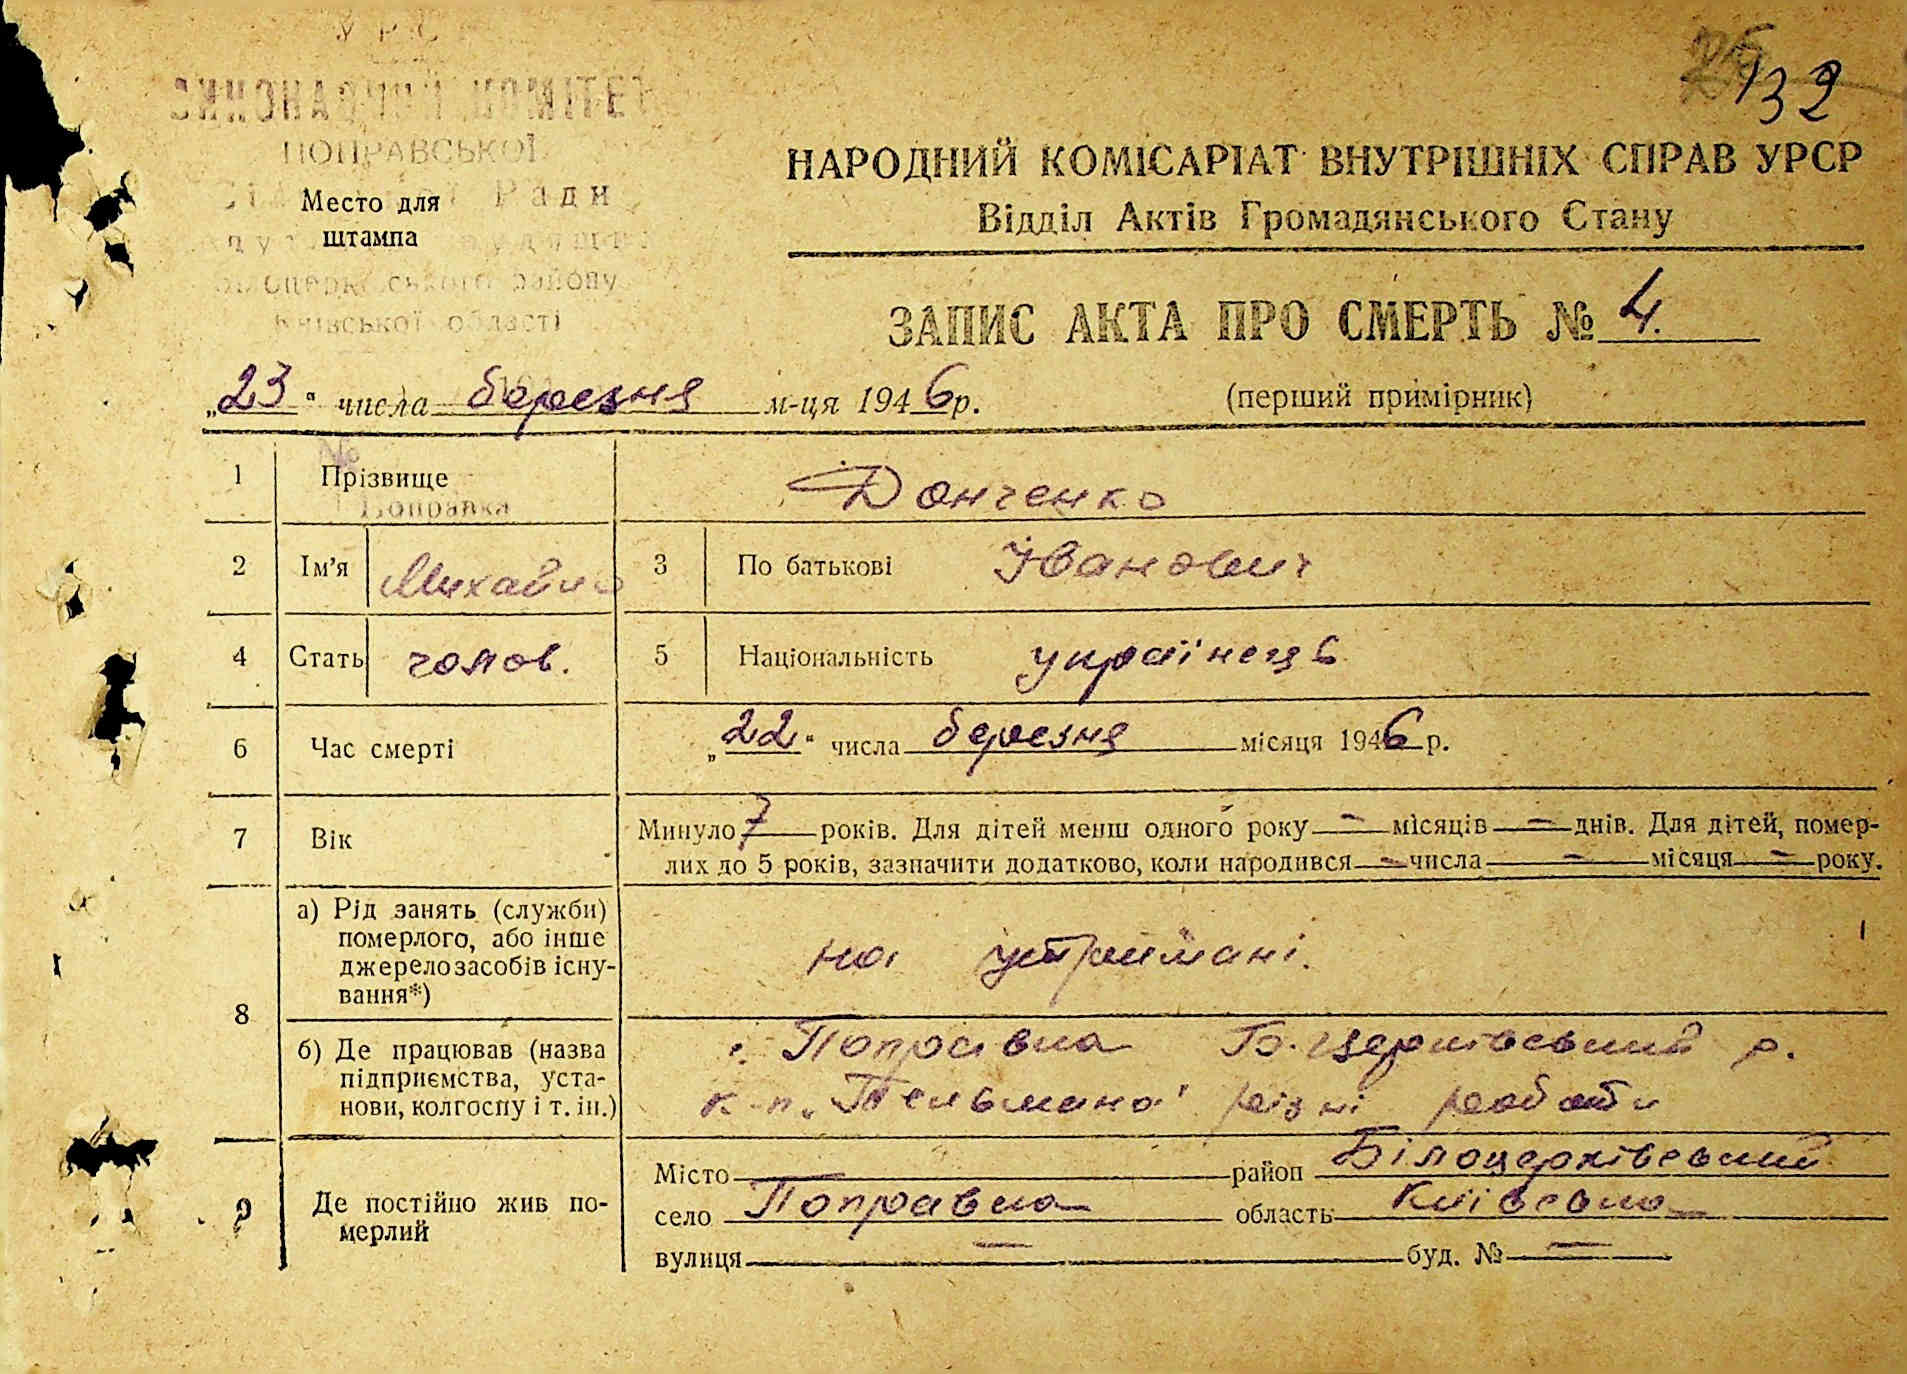 УРС
ВИКОНАВЧИЙ КОМІТЕТ
ПОПРАВСЬКОЇ
Сільської Ради
Место для
штампа
Білоцерківського району
Київської області
25
132
НАРОДНИЙ КОМІСАРІАТ ВНУТРІШНІХ СПРАВ УРСР
Відділ Актів Громадянського Стану
ЗАПИС АКТА ПРО СМЕРТЬ № 4.
„23“ числа березня м-ця 1946 р.
(перший примірник)
№
1 Прізвище Донченко
Поправка
2 Ім’я Михайло 3 По батькові Іванович
4 Стать чолов. 5 Національність українець
6 Час смерті „22“ числа березня місяця 1946 р.
7 Вік Минуло 7 років. Для дітей менш одного року — місяців — днів. Для дітей, помер-
лих до 5 років, зазначити додатково, коли народився — числа — місяця — року.
8 а) Рід занять (служби)
померлого, або інше
джерело засобів існу-
вання*)
на утримані.
б) Де працював (назва
підприємства, уста-
нови, колгоспу і т. ін.)
с. Поправка Б. Церківський р.
к-п „Тельмана" різні роботи
9 Де постійно жив по-
мерлий
Місто район Білоцерківський
село Поправка область Київська
вулиця — буд. № —